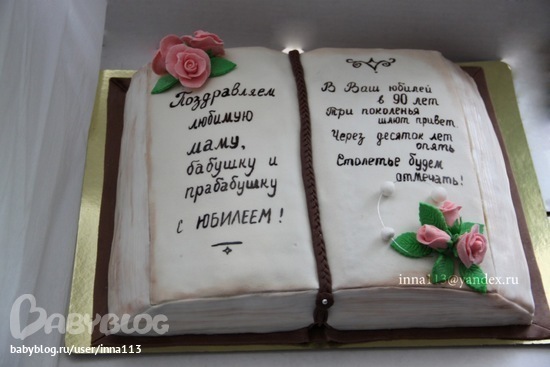 Поздравляем
любимую
маму,
бабушку и
прабабушку
с ЮБИЛЕЕМ!
В Ваш юбилей
в 90 лет
Три поколенья
шлют привет
Через десяток лет
опять
Столетье будем
отмечать!
inna113@yandex.ru
BABYBLOG
babyblog.ru/user/inna113